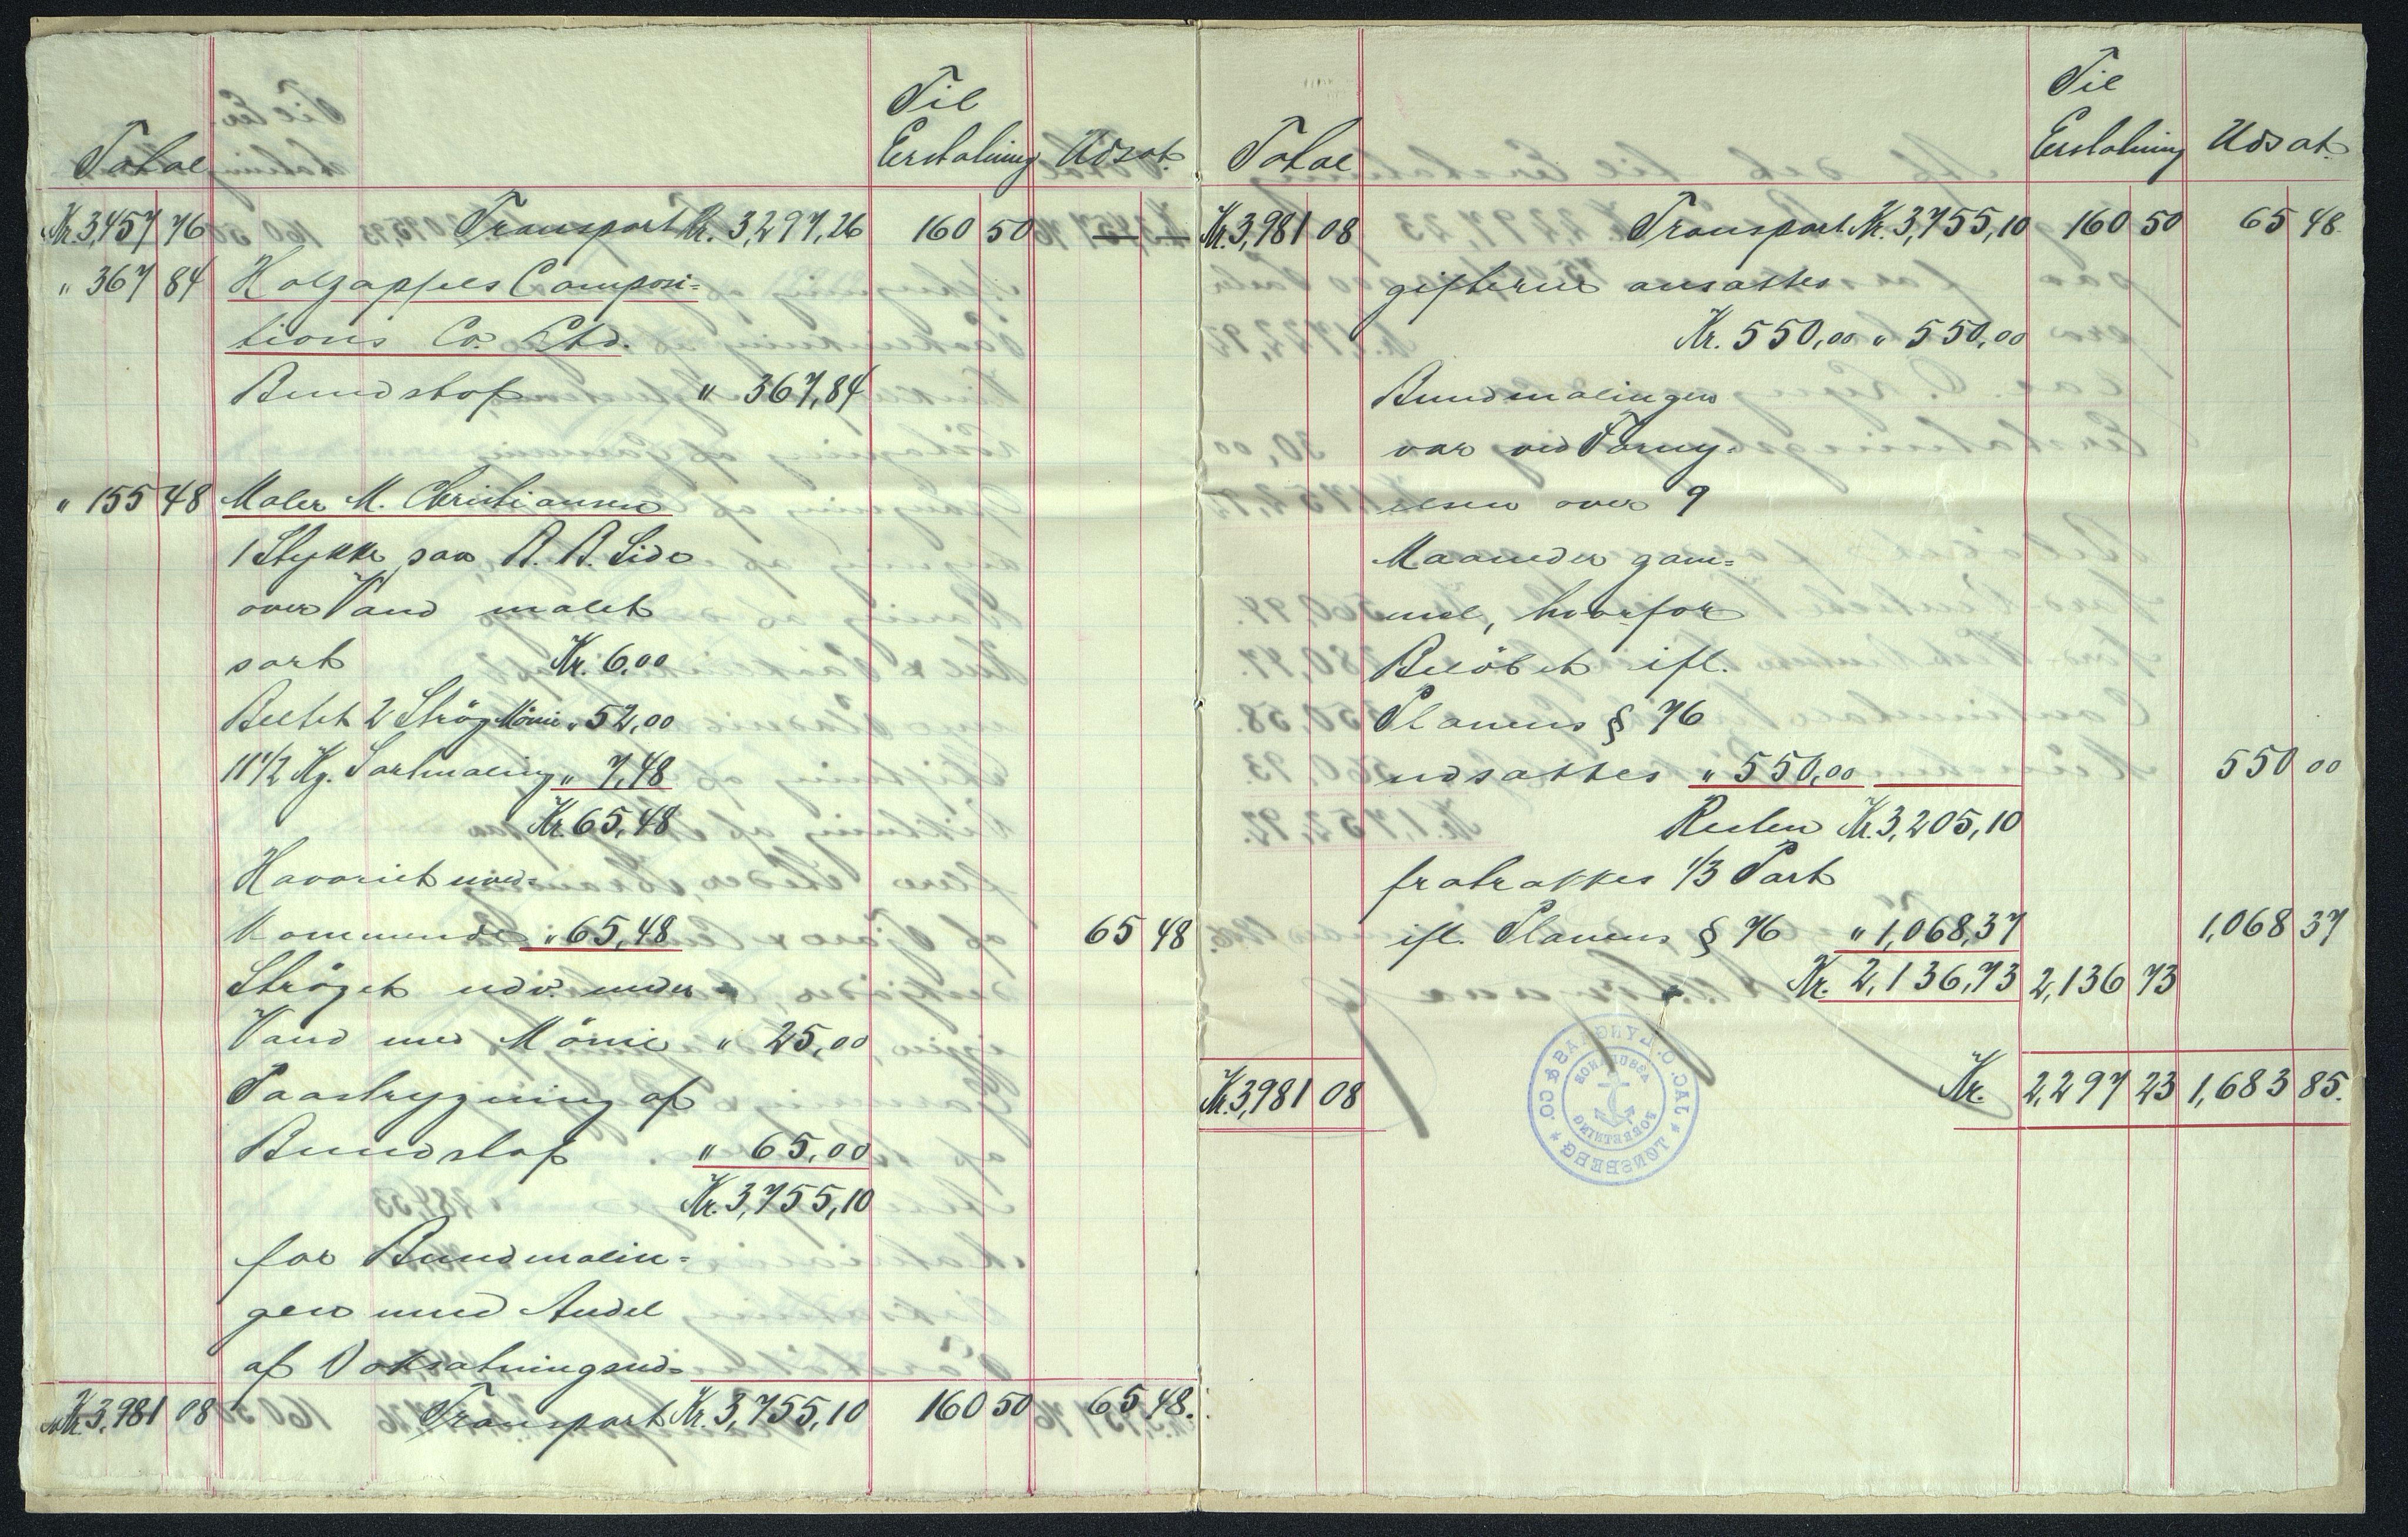 Total
Til
Erstatning
Udsat.
Kr. 3,457 76
Transport Kr. 3,297,26
160 50
" 367 84
Holzapfels Composi=
tions Co. Ltd.
Bundstof " 367,84
" 155 48
Maler M. Christiansen
1 Stykke paa B. B. Side
over Vand malet
sort Kr. 6.00
Beltet 2 Strøg Mönie " 52,00
11½ Kg. Sortmaling " 7,48
Kr. 65,48
Havariet uved=
kommende " 65,48
65 48
Ströget udv. under
Vand med Mönie " 25,00
Paastrygning af
Bundstof " 65,00
Kr. 3,755,10
for Bundmalin=
gen med Andel
af Doksætningsud=
Kr. 3,981 08
Transport Kr. 3,755,10
160 50
65 48.
Total
Til
Erstatning
Udsat.
Kr. 3,981 08
Transport Kr. 3,755,10
160 50
65 48.
gifterne ansattes
Kr. 550,00 " 550,00
Bundmalingen
var ved Forny=
elsen over 9
Maaneder gam=
mel, hvorfor
Belöbet ifl.
Planens § 76
udsattes " 550,00
550 00
Resten Kr. 3,205,10
fratrækkes 1/3 Part
ifl. Planens § 76 " 1,068,37
1,068 37
Kr. 2,136,73
2,136 73
Kr. 3,981 08
Kr. 2,297 23
1,683 85.